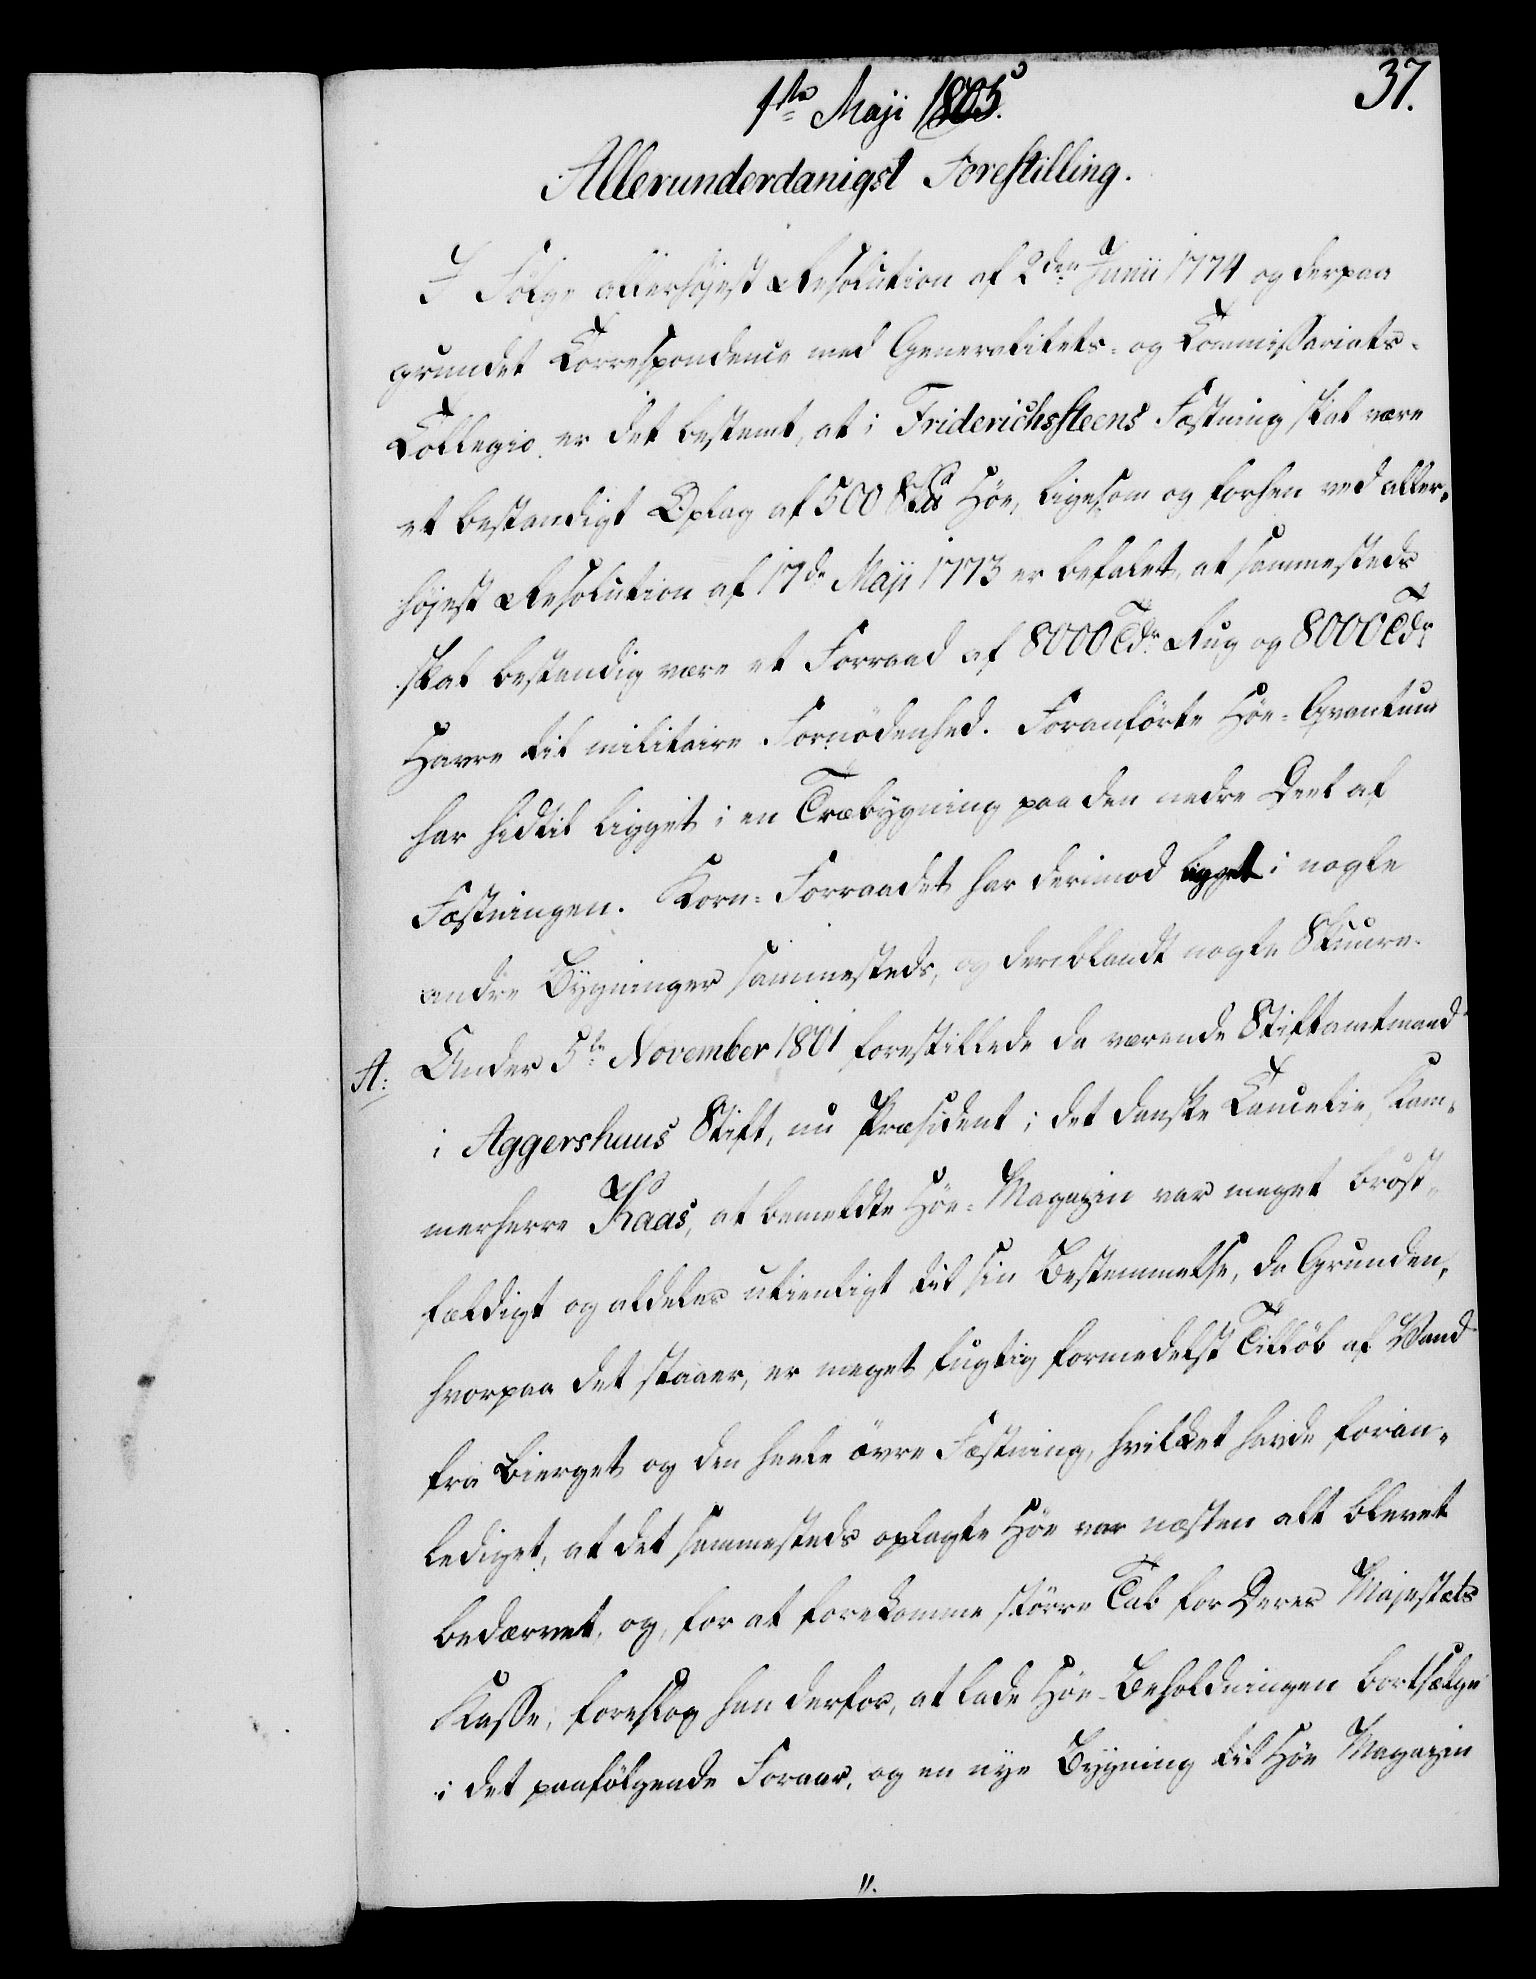 37.
1ste Maji 1805.
Allerunderdanigst Forestilling.
I Følge allerhøjest Resolution af 2den Junii 1774 og derpaa
grundet Correspondence med Generalitets- og Commissariats-
Collegio, er det bestemt, at i Friderichssteens Fæstning skal være
et bestandigt Oplag af 500 Høe, ligesom og forhen ved aller-
højest Resolution af 17de Maji 1773 er befalet, at sammesteds
skal bestandig være et Forraad af 8000 Tdr Rug og 8000 Tdr
Havre til militaire Fornødenhed. Foranførte Høe-Qvantum
har hidtil ligget i en Træbygning paa den nedre Deel af
Fæstningen. Korn-Forraadet har derimod ligget i nogle
andre Bygninger sammesteds, og deriblandt nogle Skuure.
A: Under 5te November 1801 forestillede da værende Stiftamtmand
i Aggershuus Stift, nu Præsident i det danske Cancelie, Kam-
merherre Kaas, at bemeldte Høe-Magazin var meget brøst-
fældigt og aldeles utienligt til sin Bestemmelse, da Grunden,
hvorpaa det staaer, er meget fugtig formedelst Tilløb af Vand
fra Bierget og den heele øvre Fæstning, hvilket havde foran-
lediget, at det sammesteds oplagte Høe var næsten alt blevet
bedærvet, og, for at forekomme større Tab for Deres Majestæts
Kasse, foreslog han derfor, at lade Høe-Beholdningen bortsælge
i det paafølgende Foraar, og en nye Bygning til Høe Magazin